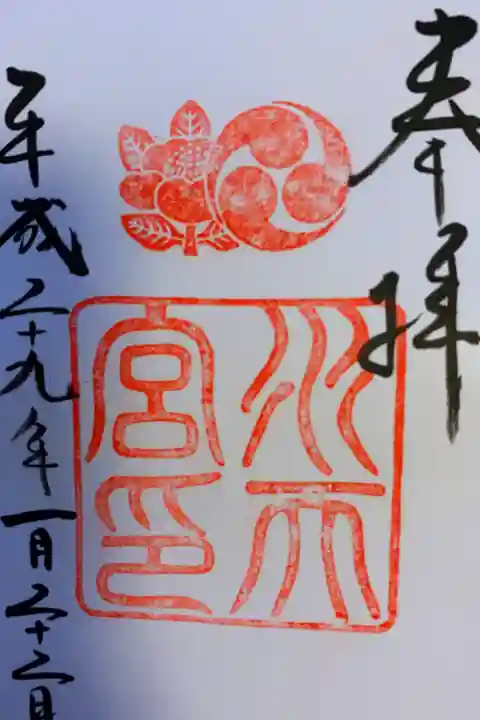 奉拝
水天
宮印
平成二十九年一月二十二日